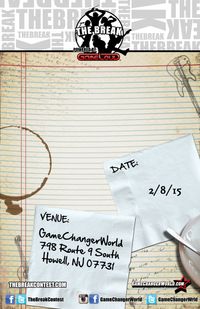 THE BREAK
DATE:
2/8/15
VENUE:
GameChangerWorld
798 Route 9 South
Howell, NJ 07731
THEBREAKCONTEST.COM
GAMECHANGERWORLD.COM
TheBreakContest
GameChangerWrld
GameChangerWrld